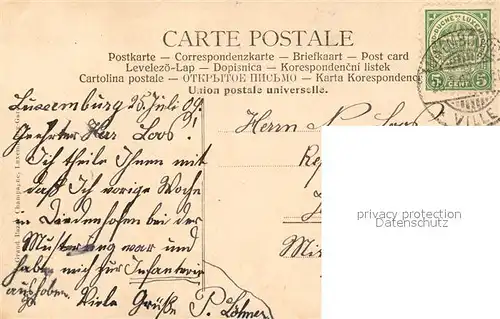 CARTE POSTALE
Postkarte — Correspondenzkarte — Briefkaart — Post card
Levelező-Lap — Dopisnica — Korespondenční listek
Cartolina postale — ОТКРЫТОЕ ПИСЬМО — Karta Korespondenc
Union postale universelle.
5 CENT. 5
VILLE
Luxemburg 26. Juli 09.
Geehrter Herr Loos!
Ich theile Ihnen mit
daß Ich vorige Woche
in Diedenhofen bei der
Musterung war und
habe mich für Infanterie
ausheben.
Viele Grüße P.
Herrn N. Loos
privacy protection
Datenschutz